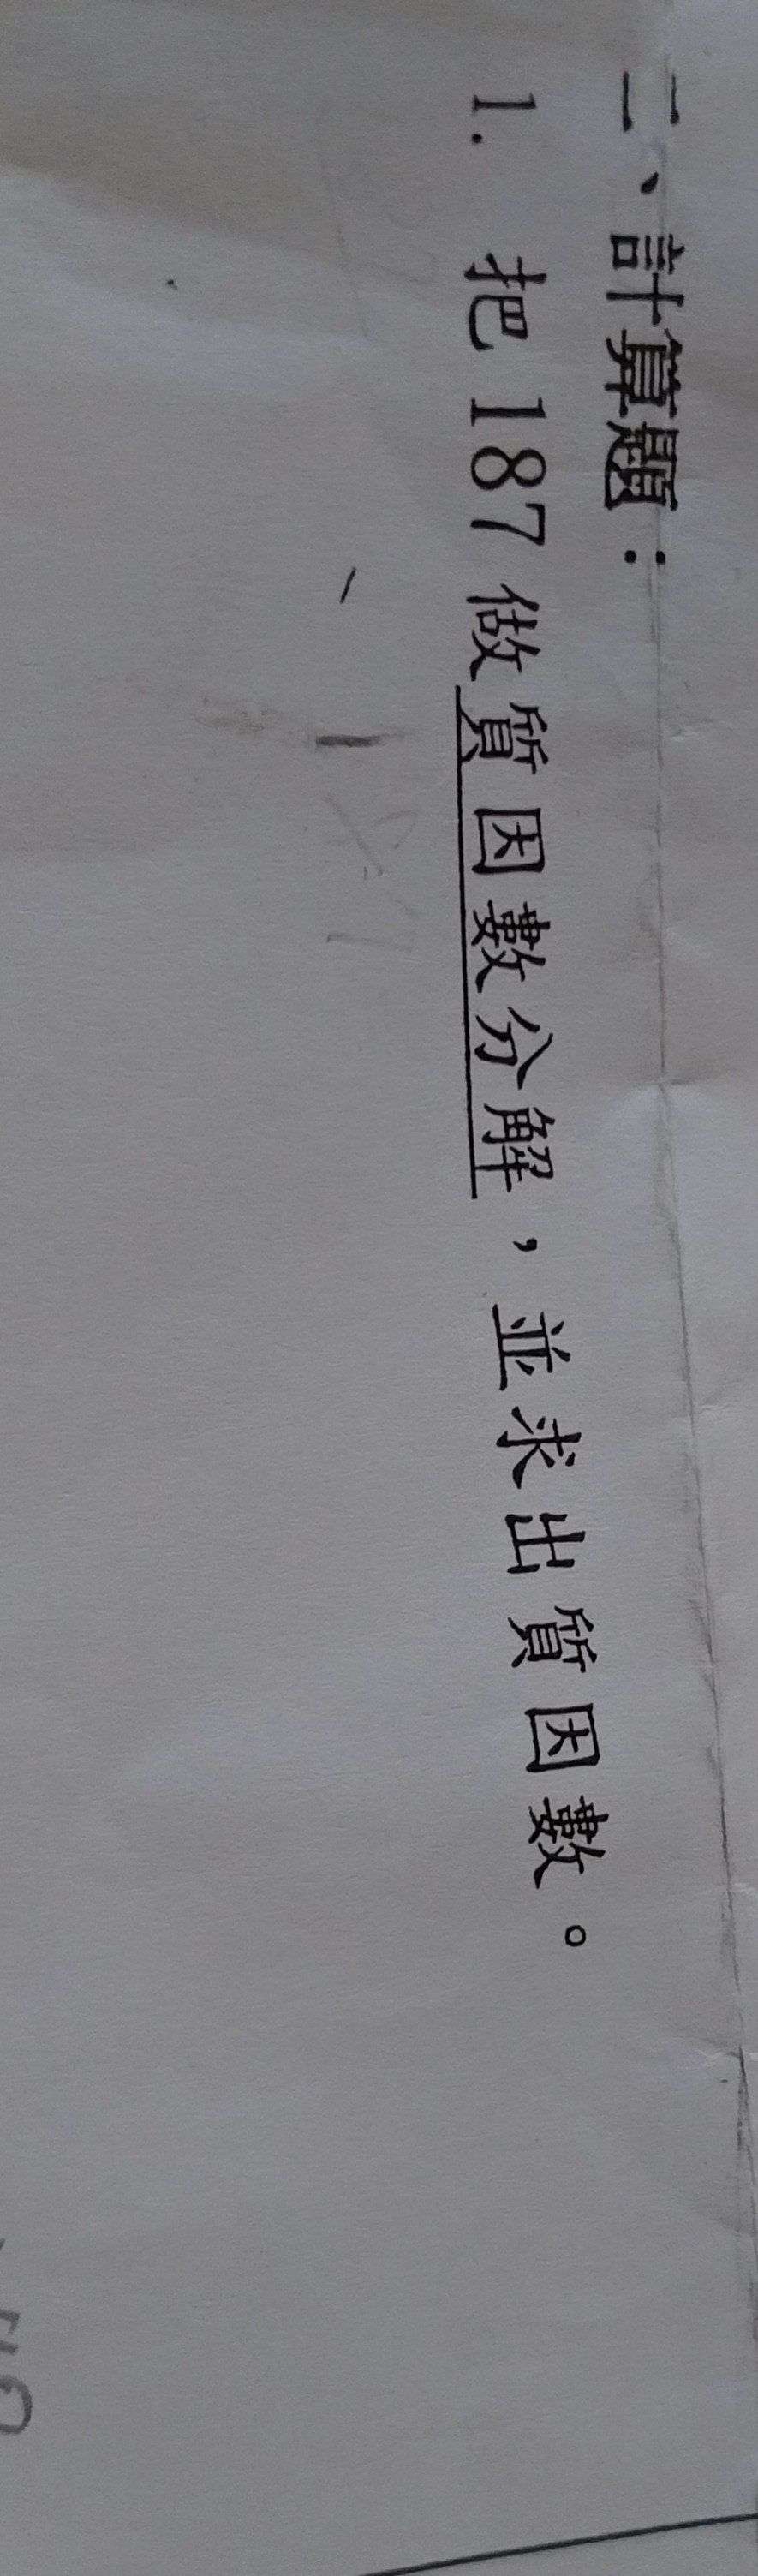 二、計算題：
1. 把 187 做質因數分解，並求出質因數。